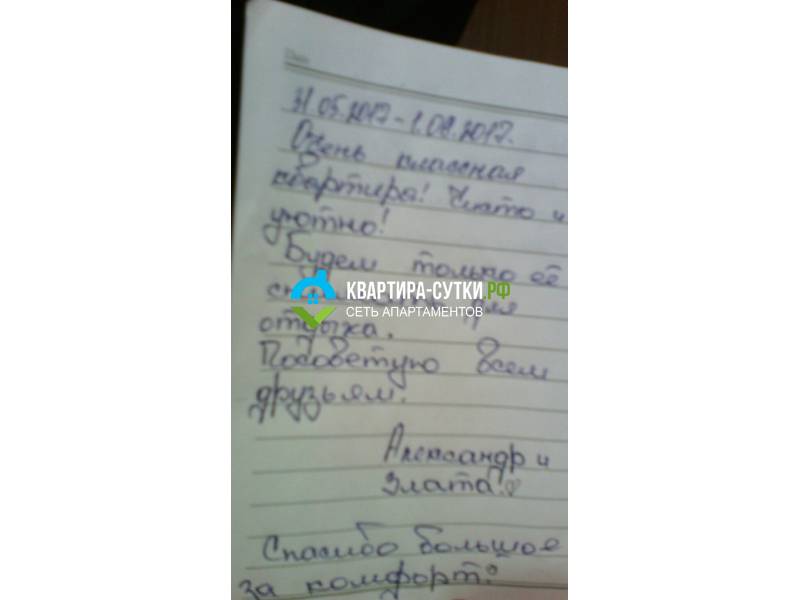 31.05.2017-1.06.2017.
Очень классная
квартира! Чисто и
уютно!
Будем только её
КВАРТИРА-СУТКИ.РФ
СЕТЬ АПАРТАМЕНТОВ
для
отдыха.
Посоветую всем
друзьям.
Александр и
Злата!
Спасибо большое
за комфорт!